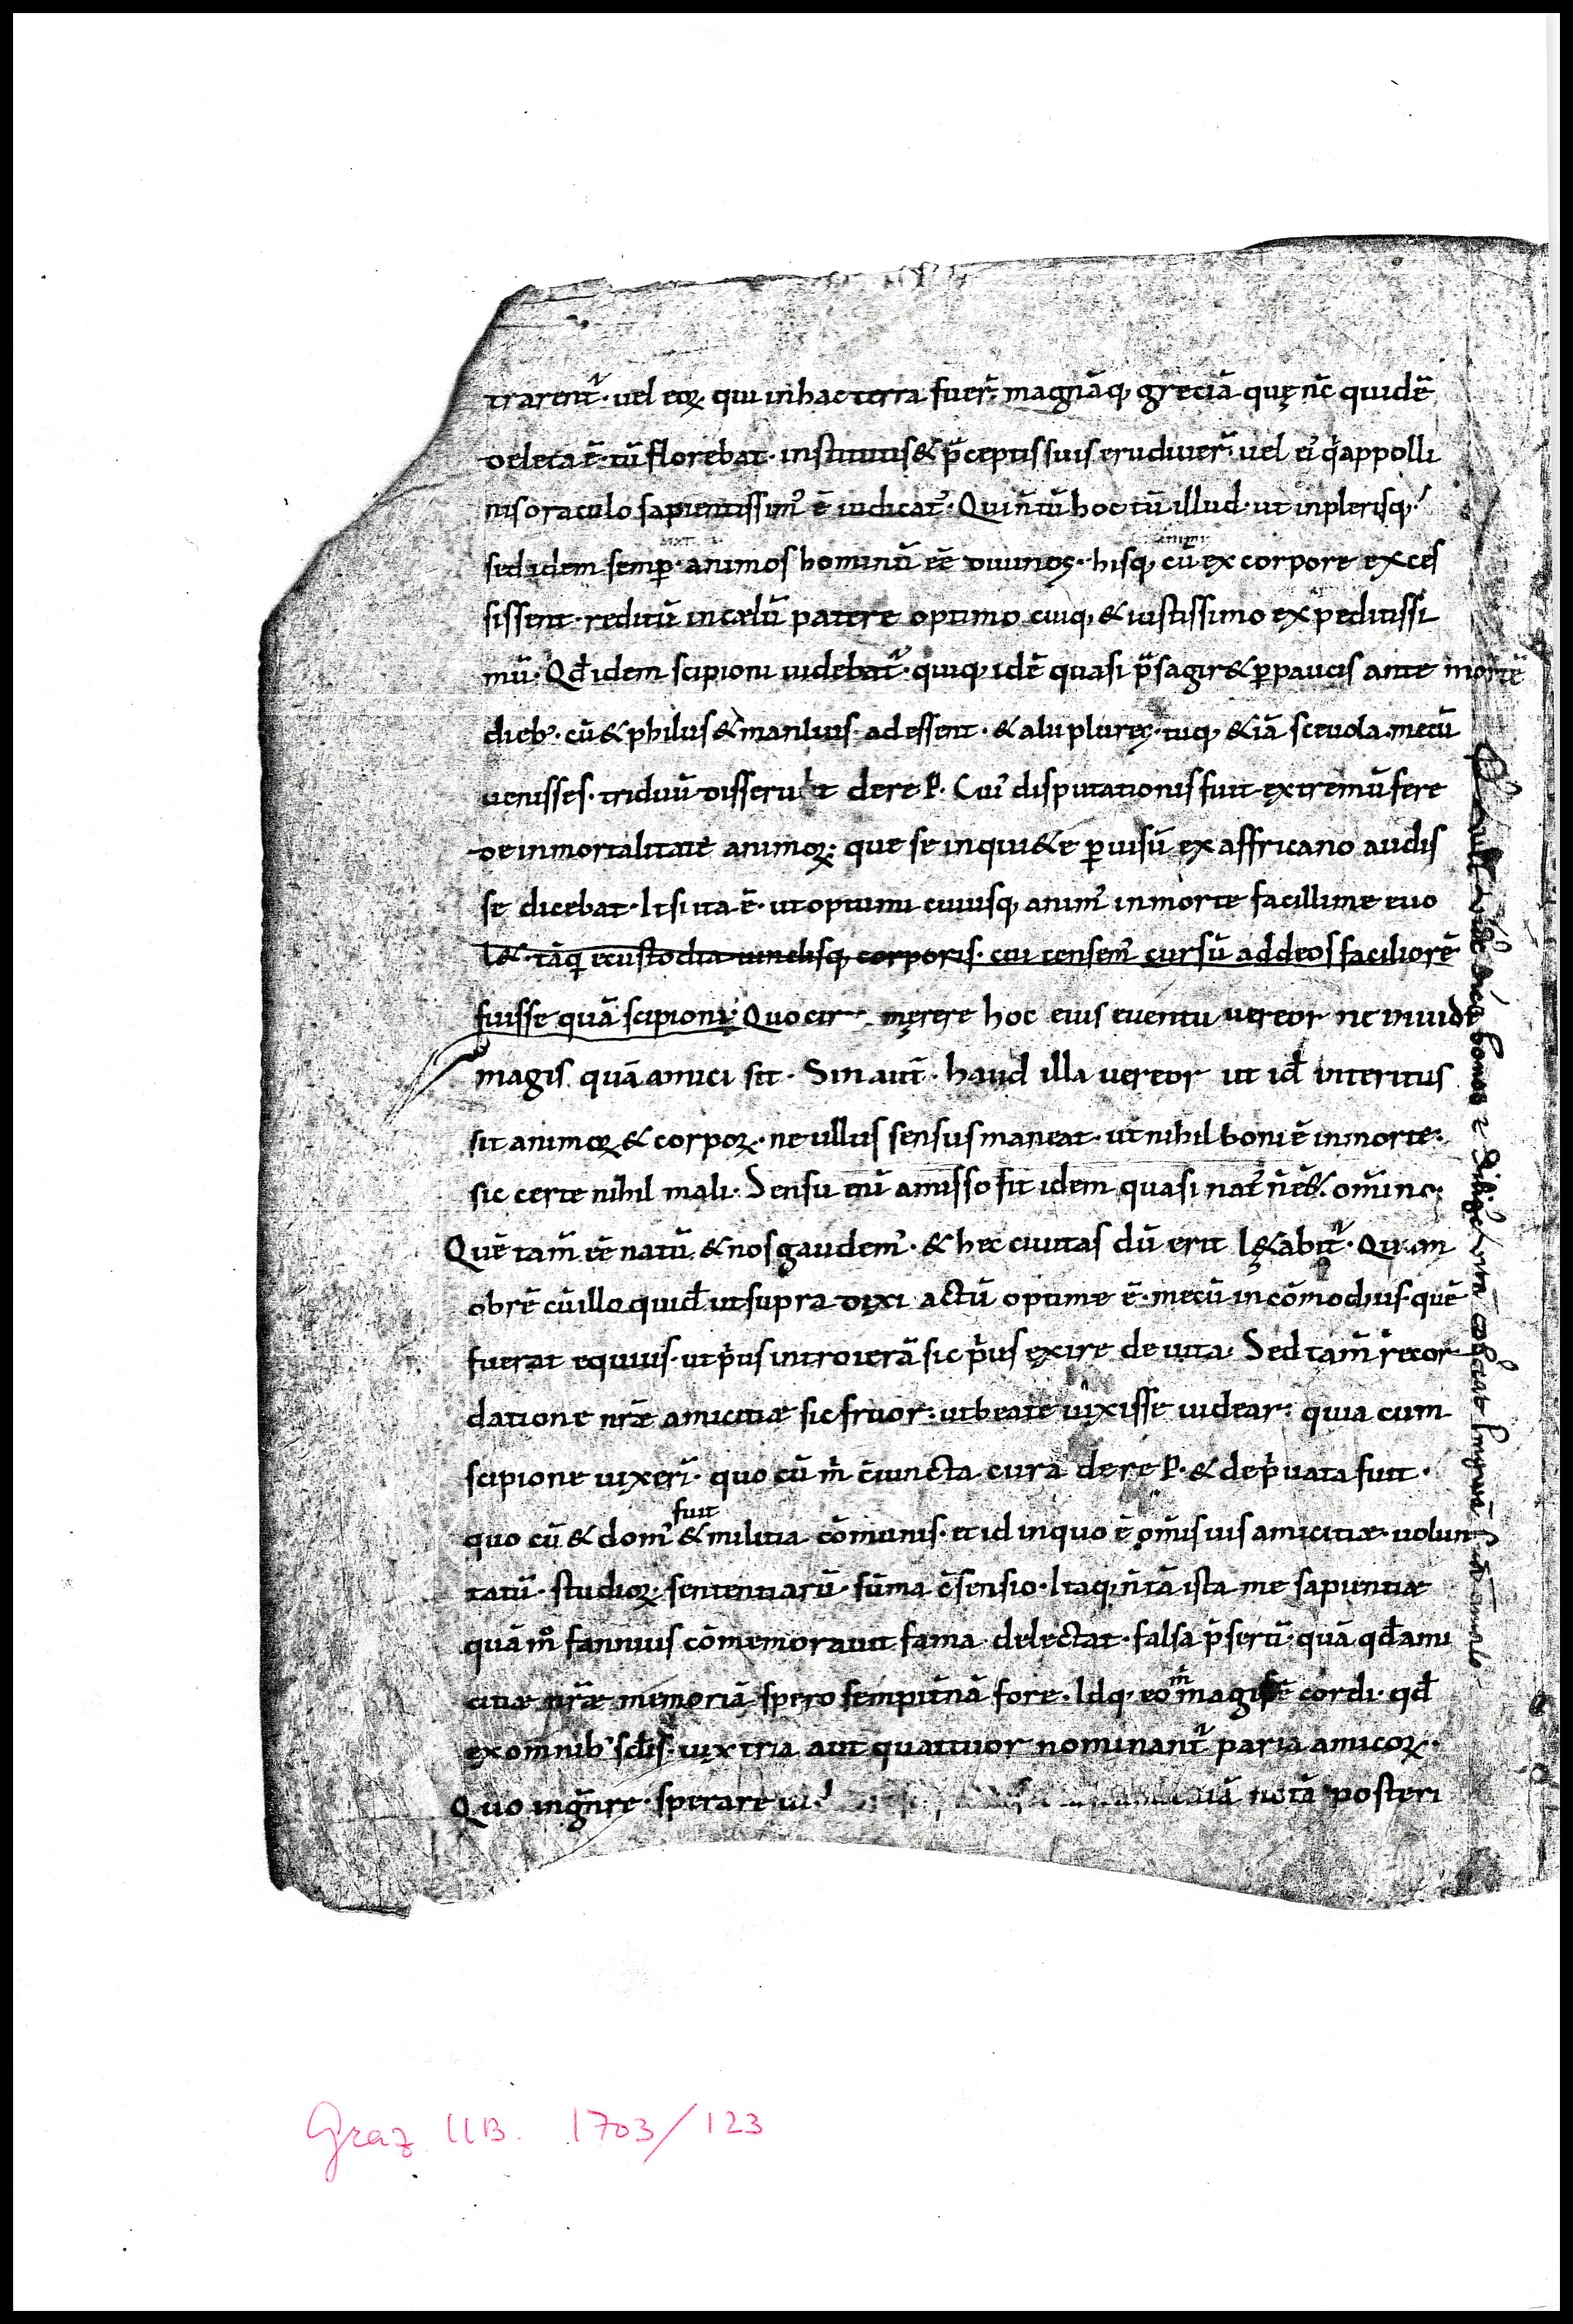 trarent᷑· uel eoꝝ qui in hac terra fuer̄· magnāq; greciā quę nc̄ quidē
deleta ē· tū florebat· institutis & p̄ceptis suis erudiuer̄· uel ei᷒ q̇ appolli
nis oraculo sapientissim᷒ ē iudicat᷒· Qui n̄ tū hoc tū illud· ut in plerisq;
sed idem semp̱· animos hominū eē diuinos· hisq; cū ex corpore exces
animi
sissent· reditū in cælū patere optimo cuiq; & iustissimo expeditissi
mū· Qd̄ idem scipioni uidebat᷑· quiq; idē quasi p̄sagir& p̱paucis ante mortē
dieb᷒· cū & philus & manlius adessent· & alii plures· tuq; & iā sceuola mecū
uenisses· triduū disseruit de re P· Cui᷒ disputationis fuit extremū fere
de inmortalitate animoꝝ· que se in qui&e p̱ uisū ex affricano audis
se dicebat· Id si ita ē· ut optimi cuiusq; anim᷒ in morte facillime euo
l&· tāq̄ e custodia uinclisq; corporis· cui censem᷒ cursū ad deos faciliorē
fuisse quā scipioni· Quocir męrere hoc eius euentu uereor ne inuidi
magis quā amici sit· Sin aut̄· haud illa uereor ut id̄ interitus
sit animoꝝ & corpoꝝ· ne ullus sensus maneat· ut nihil boni ē in morte·
sic certe nihil mali· Sensu eni̅ amisso fit idem quasi nat᷒ n̄ eēt· om̄ino·
Quē tam̄ eē natū & nos gaudem᷒· & hec ciuitas dū erit l&abit᷑· Quam
obrē cū illo quid̄ ut supra dixi actū optime ē· mecū incōmodius quē
fuerat equius· ut p̓us introierā sic p̓us exire de uita· Sed tam̄ recor
datione nr̄æ amicitiæ sic fruor· ut beate uixisse uidear· quia cum
scipione uixeri̅· quo cū m̓ c̄iuncta cura de re P· & de p̓uata fuit·
fuit
quo cū & dom᷒ & militia cōmunis· et id in quo ē om̄is uis amicitiæ· uolun
tatū· studioꝝ· sententiarū· sūma c̄sensio· Itaq; n̄ tā ista me sapientiæ
quā m̊ fannius cōmemorauit fama delectat· falsa p̄serti̅· quā qd̄ ami
citiæ nr̄æ memoriā spero sempit̄nā fore· Idq; eo m̓ magis ē cordi· qd̄
ex omnib᷒ sc̄lis· uix tria aut quattuor nominant᷑ paria amicoꝝ·
Quo in gn̄re· sperare ui iā notā posteri
Graz UB. 1703/123